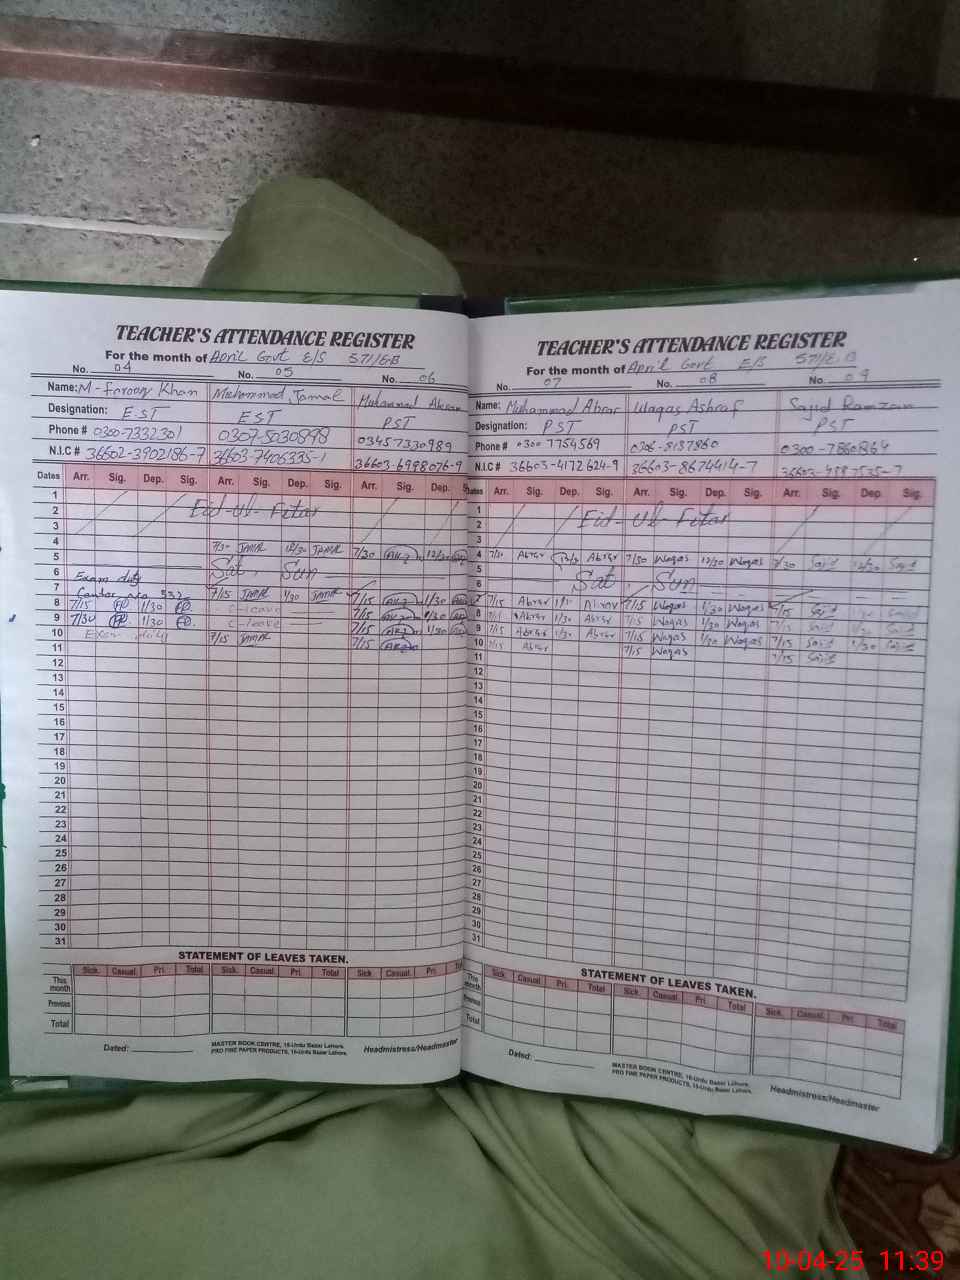 TEACHER'S ATTENDANCE REGISTER
For the month of April Govt E/S 571/G.B
No. 04 No. 05 No. 06
Name: M-Farooq Khan Muhammad Jamal Muhammad Akram
Designation: EST EST PST
Phone # 0300-7332301 0307-5030898 03457330989
N.I.C # 36602-3902186-7 36603-7406335-1 36603-6998076-9
Dates Arr. Sig. Dep. Sig. Arr. Sig. Dep. Sig. Arr. Sig. Dep.
1
2 Eid-Ul-Fitar
3
4 7/30 JAMAL 12/30 JAMAL 7/30 12/30
5 Sat, Sun
6 Exam duty
7 7/15 JAMAL 1/30 JAMAL 7/15 1/30
8 7/15 1/30 C-leave 7/15 1/30
9 7/30 1/30 C-leave 7/15 1/30
10 Exam duty 7/15 JAMAL 7/15
11
12
13
14
15
16
17
18
19
20
21
22
23
24
25
26
27
28
29
30
31
STATEMENT OF LEAVES TAKEN.
Sick. Casual. Pri. Total Sick. Casual. Pri. Total Sick Casual. Pri.
This month
Previous
Total
Dated:
MASTER BOOK CENTRE, 16-Urdu Bazar Lahore.
PRO FINE PAPER PRODUCTS, 15-Urdu Bazar Lahore.
Headmistress/Headmaster
TEACHER'S ATTENDANCE REGISTER
For the month of April Govt E/S 571/G.B
No. 07 No. 08 No. 09
Name: Muhammad Abrar Waqas Ashraf Sajid Ramzan
Designation: PST PST PST
Phone # 0300 7754569 0306-8137860 0300-7860864
N.I.C # 36603-4172624-9 36603-8674414-7
Dates Arr. Sig. Dep. Sig. Arr. Sig. Dep. Sig. Arr. Sig. Dep. Sig.
1
2 Eid-Ul-Fitar
3
4 Abrar Abrar 7/30 Waqas 12/30 Waqas 7/30 Sajid 12/30 Sajid
5 Sat, Sun
6
7 7/15 Abrar Abrar 7/15 Waqas 1/30 Waqas 7/15 Sajid
8 Abrar 1/30 Abrar 7/15 Waqas 1/30 Waqas 7/15 Sajid 1/30 Sajid
9 7/15 Abrar 1/30 Abrar 7/15 Waqas 1/30 Waqas 7/15 Sajid 1/30 Sajid
10 7/15 Abrar 7/15 Waqas 7/15 Sajid
11
12
13
14
15
16
17
18
19
20
21
22
23
24
25
26
27
28
29
30
31
STATEMENT OF LEAVES TAKEN.
Sick. Casual. Pri. Total Sick. Casual. Pri. Total Sick. Casual. Pri. Total
This month
Previous
Total
Dated:
MASTER BOOK CENTRE, 16-Urdu Bazar Lahore.
PRO FINE PAPER PRODUCTS, 15-Urdu Bazar Lahore.
Headmistress/Headmaster
10-04-25 11:39